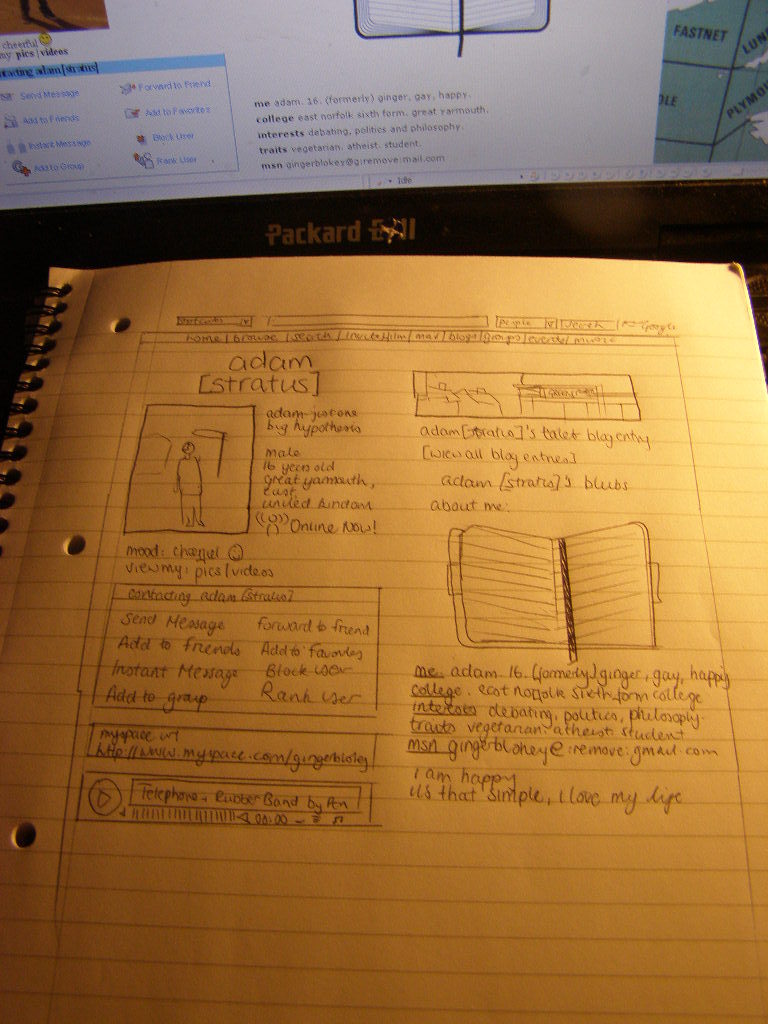 cheerful
my pics | videos
contacting adam[stratus]
Send Message
Forward to Friend
Add to Friends
Add to Favorites
Instant Message
Block User
Add to Group
Rank User
me adam. 16. (formerly) ginger, gay, happy.
college east norfolk sixth form. great yarmouth.
interests debating, politics and philosophy.
traits vegetarian. atheist. student.
msn gingerblokey@g:remove:mail.com
Idle
FASTNET
LUN
OLE
PLYMO
Packard Bell
people
search
Google
home | browse | search | invite | film | mail | blog | groups | events | music
adam
[stratus]
adam-just one
big hypothesis
male
16 years old
great yarmouth,
east
united kindom
Online Now!
mood: cheerful
view my: pics | videos
contacting adam [stratus]
Send Message
forward to friend
Add to friends
Add to favorites
Instant Message
Block user
Add to group
Rank user
myspace url
http://www.myspace.com/gingerblokey
Telephone + Rubber Band by Pen
00:00
adam[stratus]'s latest blog entry
[view all blog entries]
adam [stratus]'s blurbs
about me:
me. adam. 16. (formerly) ginger, gay, happy
college. east norfolk sixth form college
interests debating, politics, philosophy.
traits vegetarian. atheist. student
msn gingerblokey@:remove:gmail.com
i am happy
its that simple, i love my life